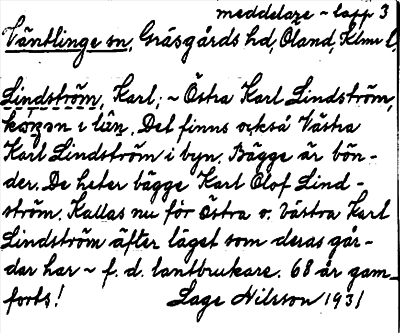 meddelare ~ lapp 3
Väntlinge sn, Gräsgårds hd, Öland, Klmr l.
Lindström, Karl; ~ Östra Karl Lindström,
i Det finns också Västra
Karl Lindström i byn. Bägge är bön-
der. De heter bägge Karl Olof Lind-
ström. Kallas nu för Östra o. Västra Karl
Lindström äfter läget som deras går-
dar har ~ f. d. lantbrukare. 68 år gam-
forts! Lage Nilsson 1931